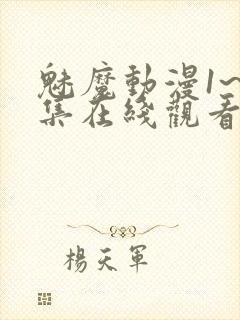 魅魔動漫1~
集在綫觀看
楊天軍